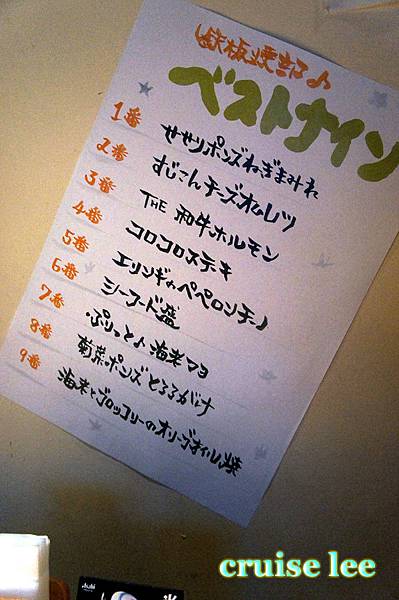 鉄板焼き編♪
ベストナイン
1番 せせりポンズねぎまみれ
2番 すじこんチーズオムレツ
3番 THE 和牛ホルモン
4番 コロコロステキ
5番 エリンギのペペロンチーノ
6番 シーフード盛
7番 ぷりっと♪海老マヨ
8番 菊菜ポンズとろろがけ
9番 海老とブロッコリーのオリーブオイル焼
Asahi
cruise lee